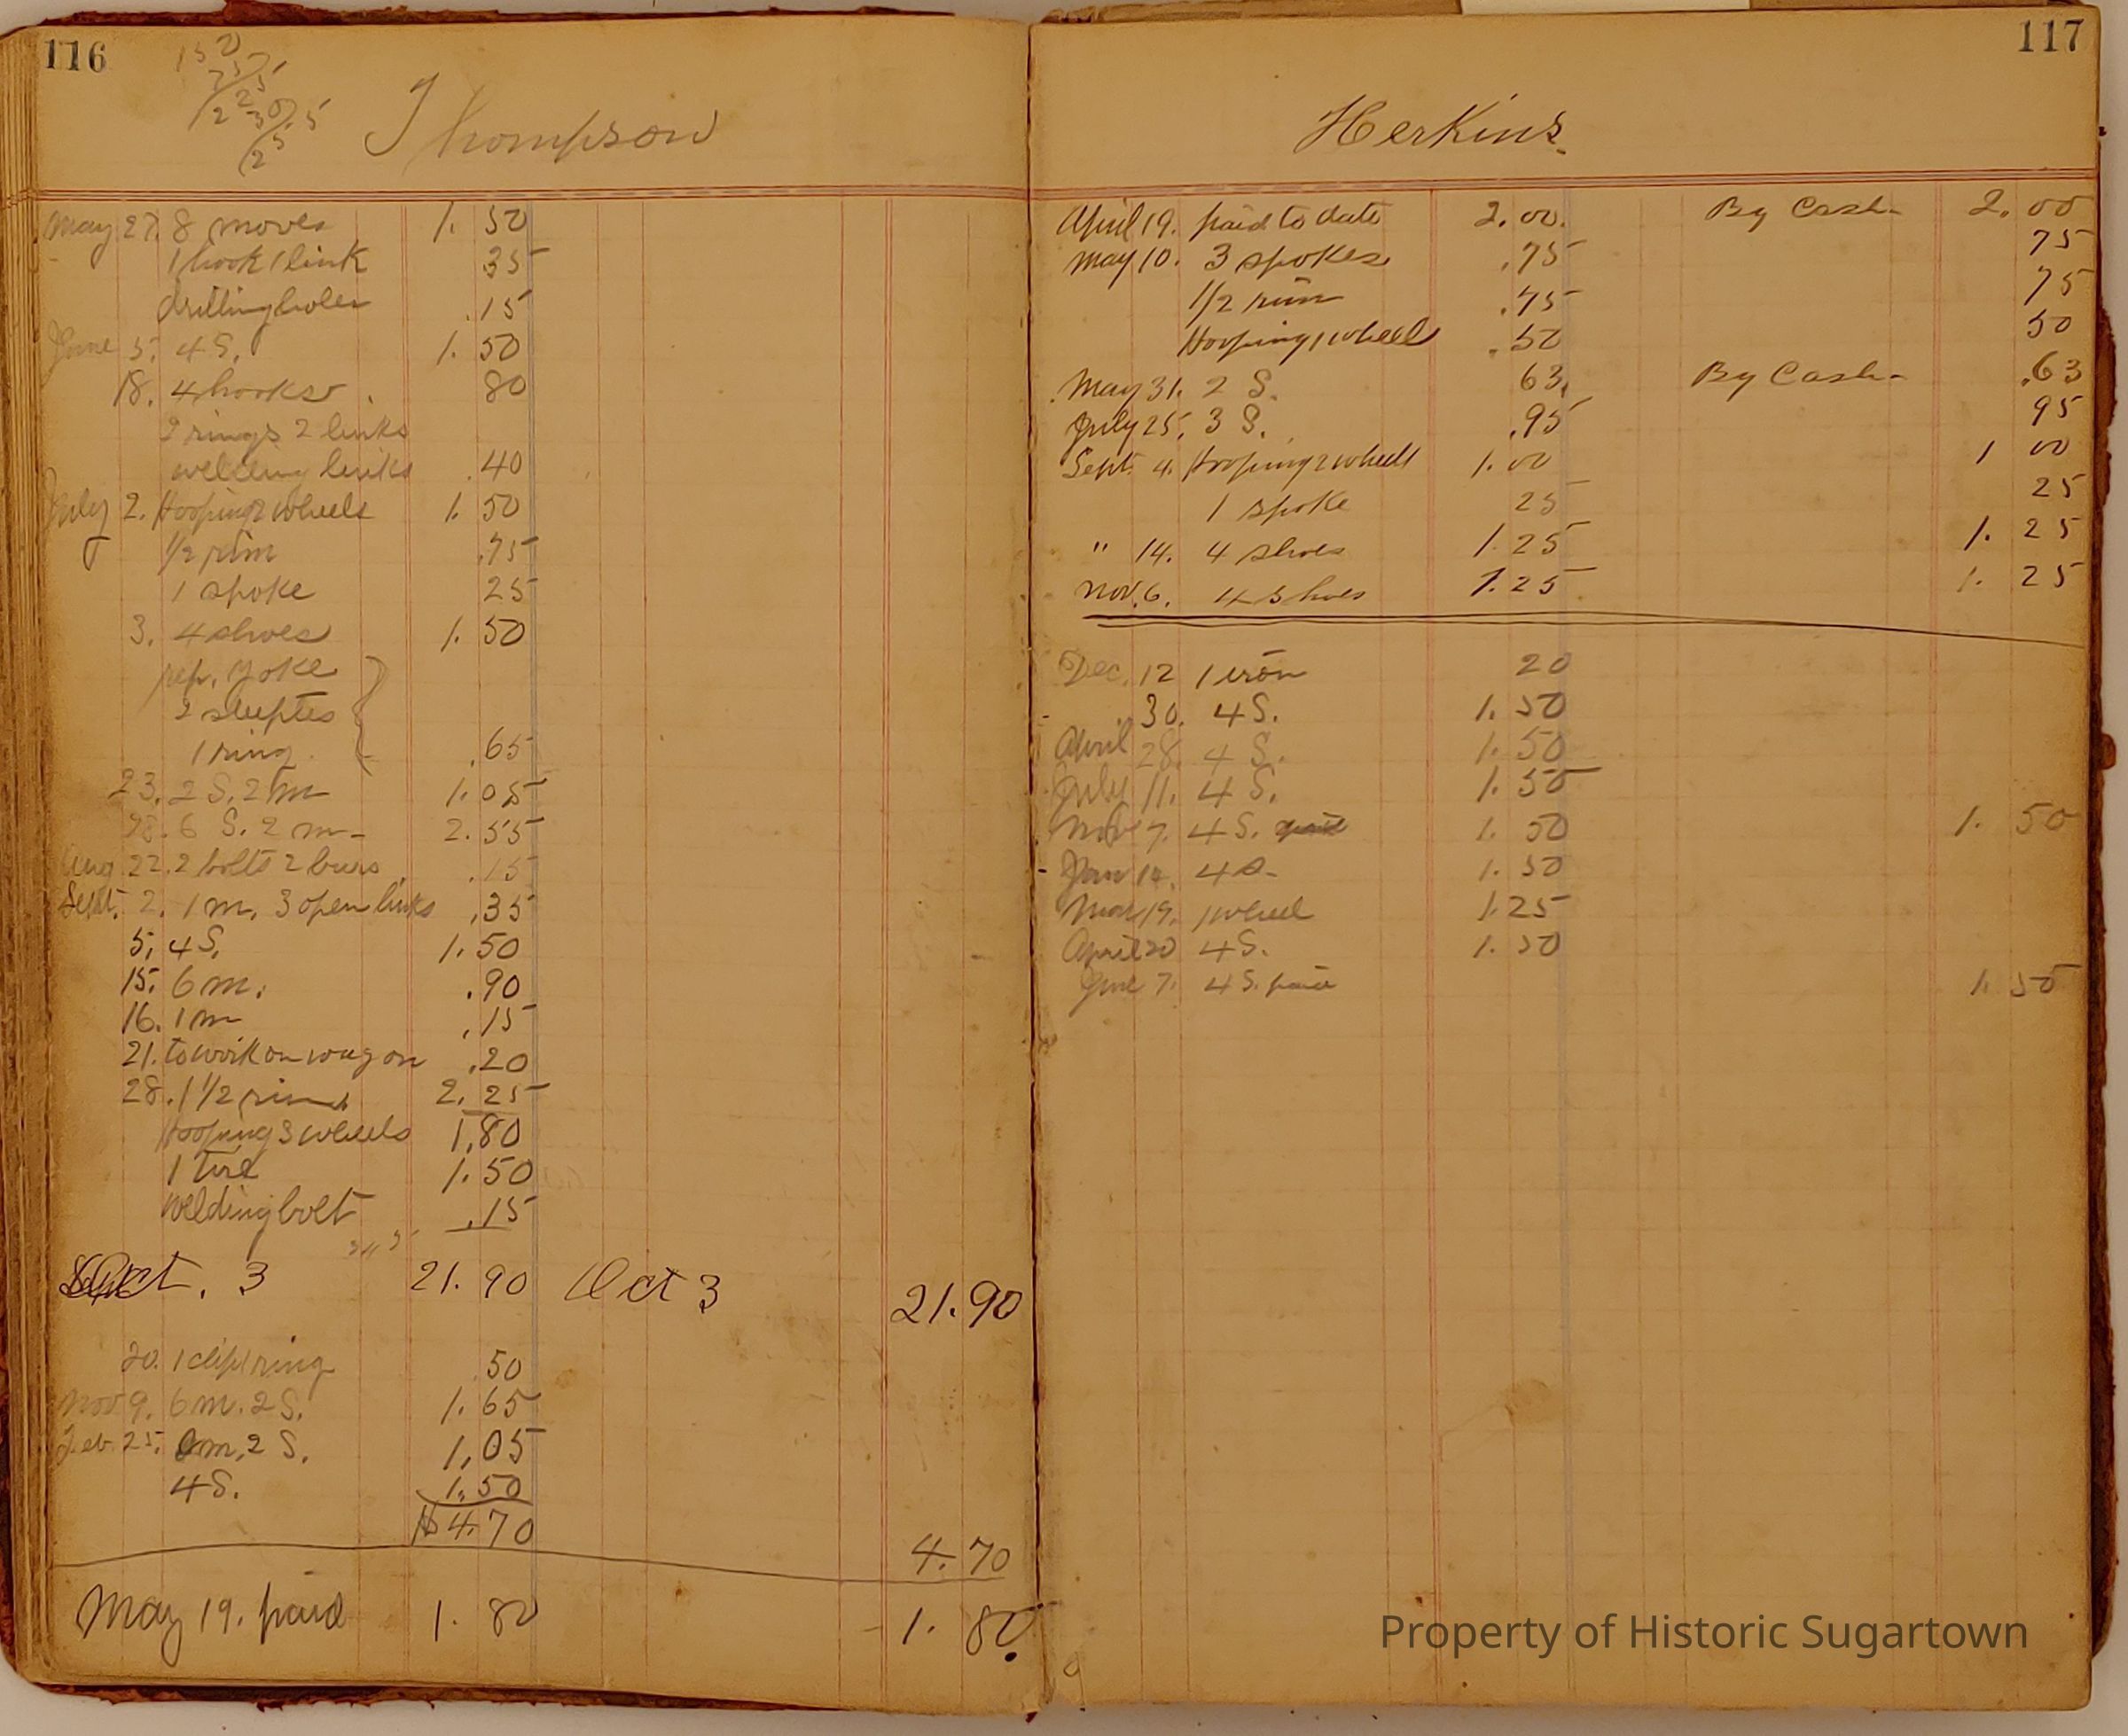 116
Thompson
May 27. 8 moves 1. 50
1 hook 1 link 35
drilling holes .15
June 5. 4 S. 1. 50
18. 4 hooks 80
2 rings 2 links
welding links .40
July 2. Hooping 2 wheels 1. 50
1/2 rim .75
1 spoke 25
3. 4 shoes 1. 50
rep. yoke
2
1 ring .65
23. 2 S. 2 m 1. 05
28. 6 S. 2 m 2. 55
Aug 22. 2 bolts 2 burs .15
Sept. 2. 1 m. 3 open links .35
5. 4 S. 1. 50
15. 6 m. .90
16. 1 m .15
21. to work on wagon .20
28. 1 1/2 rims 2. 25
Hooping 3 wheels 1.80
1 tire 1. 50
welding bolt .15
Oct. 3 21. 90 Oct 3 21. 90
20. 1 clip 1 ring 50
Nov 9. 6 m. 2 S. 1. 65
Feb. 25. m, 2 S. 1,05
4 S. 1. 50
$4.70
4. 70
May 19. paid 1. 80 1. 80.
117
Herkins.
April 19. paid to date 2. 00. By Cash 2. 00
May 10. 3 spokes .75 75
1/2 rim .75 75
Hooping 1 wheel .50 50
May 31. 2 S. 63. By Cash .63
July 25. 3 S. .95 95
Sept. 4. Hooping 2 wheels 1. 00 1 00
1 spoke 25 25
" 14. 4 shoes 1. 25 1. 25
Nov. 6. 4 shoes 1. 25 1. 25
Dec. 12 1 iron 20
30. 4 S. 1. 50
April 28. 4 S. 1. 50
July 11. 4 S. 1. 50
Nov 7. 4 S. paid 1. 50 1. 50
Jan 14. 4 S. 1. 50
Mar 19. 1 wheel 1. 25
April 20 4 S. 1. 50
June 7. 4 S. paid 1. 50
Property of Historic Sugartown